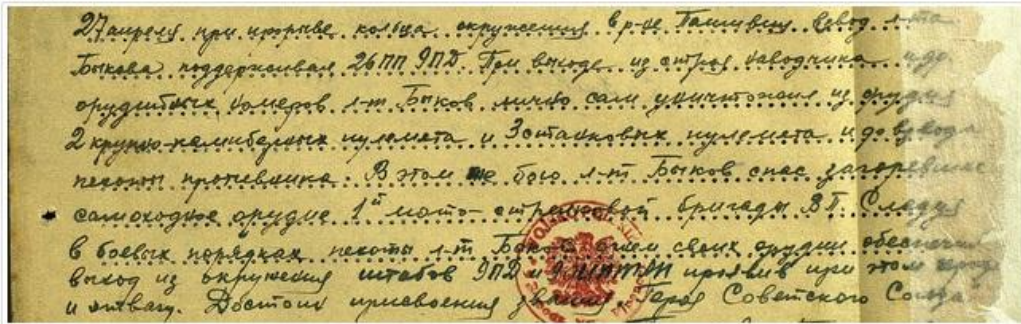 27 апреля при прорыве кольца окружения в р-не взвод л-та
Быкова поддерживал 26 ПП 9ПД. При выходе из строя наводчика и др
орудийных номеров л-т Быков лично сам уничтожил из орудия
2 крупно-калиберных пулемета и 3 станковых пулемета и до взвода
пехоты противника. В этом же бою л-т Быков спас загоревшее
самоходное орудие 1й мото-стрелковой бригады ВП. Следуя
в боевых порядках пехоты л-т Быков огнем своих орудий обеспечил
выход из окружения штабов 9ПД и проявив при этом
и отвагу. Достоин присвоения звания Героя Советского Союза.